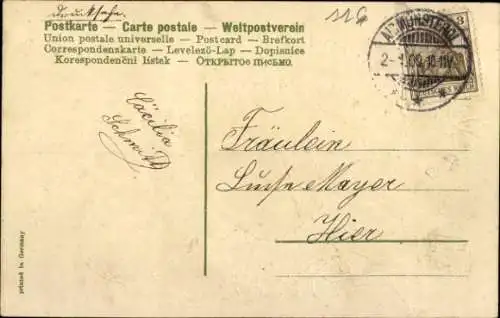 Drucksache
Postkarte — Carte postale — Weltpostverein
Union postale universelle — Postcard — Brefkort
Correspondenzkarte — Levelező-Lap — Dopisnice
Korespondenční lístek — Открытое письмо.
3
Cäcilia
Schmitt
Fräulein
Luise Mayer
Hier
printed in Germany